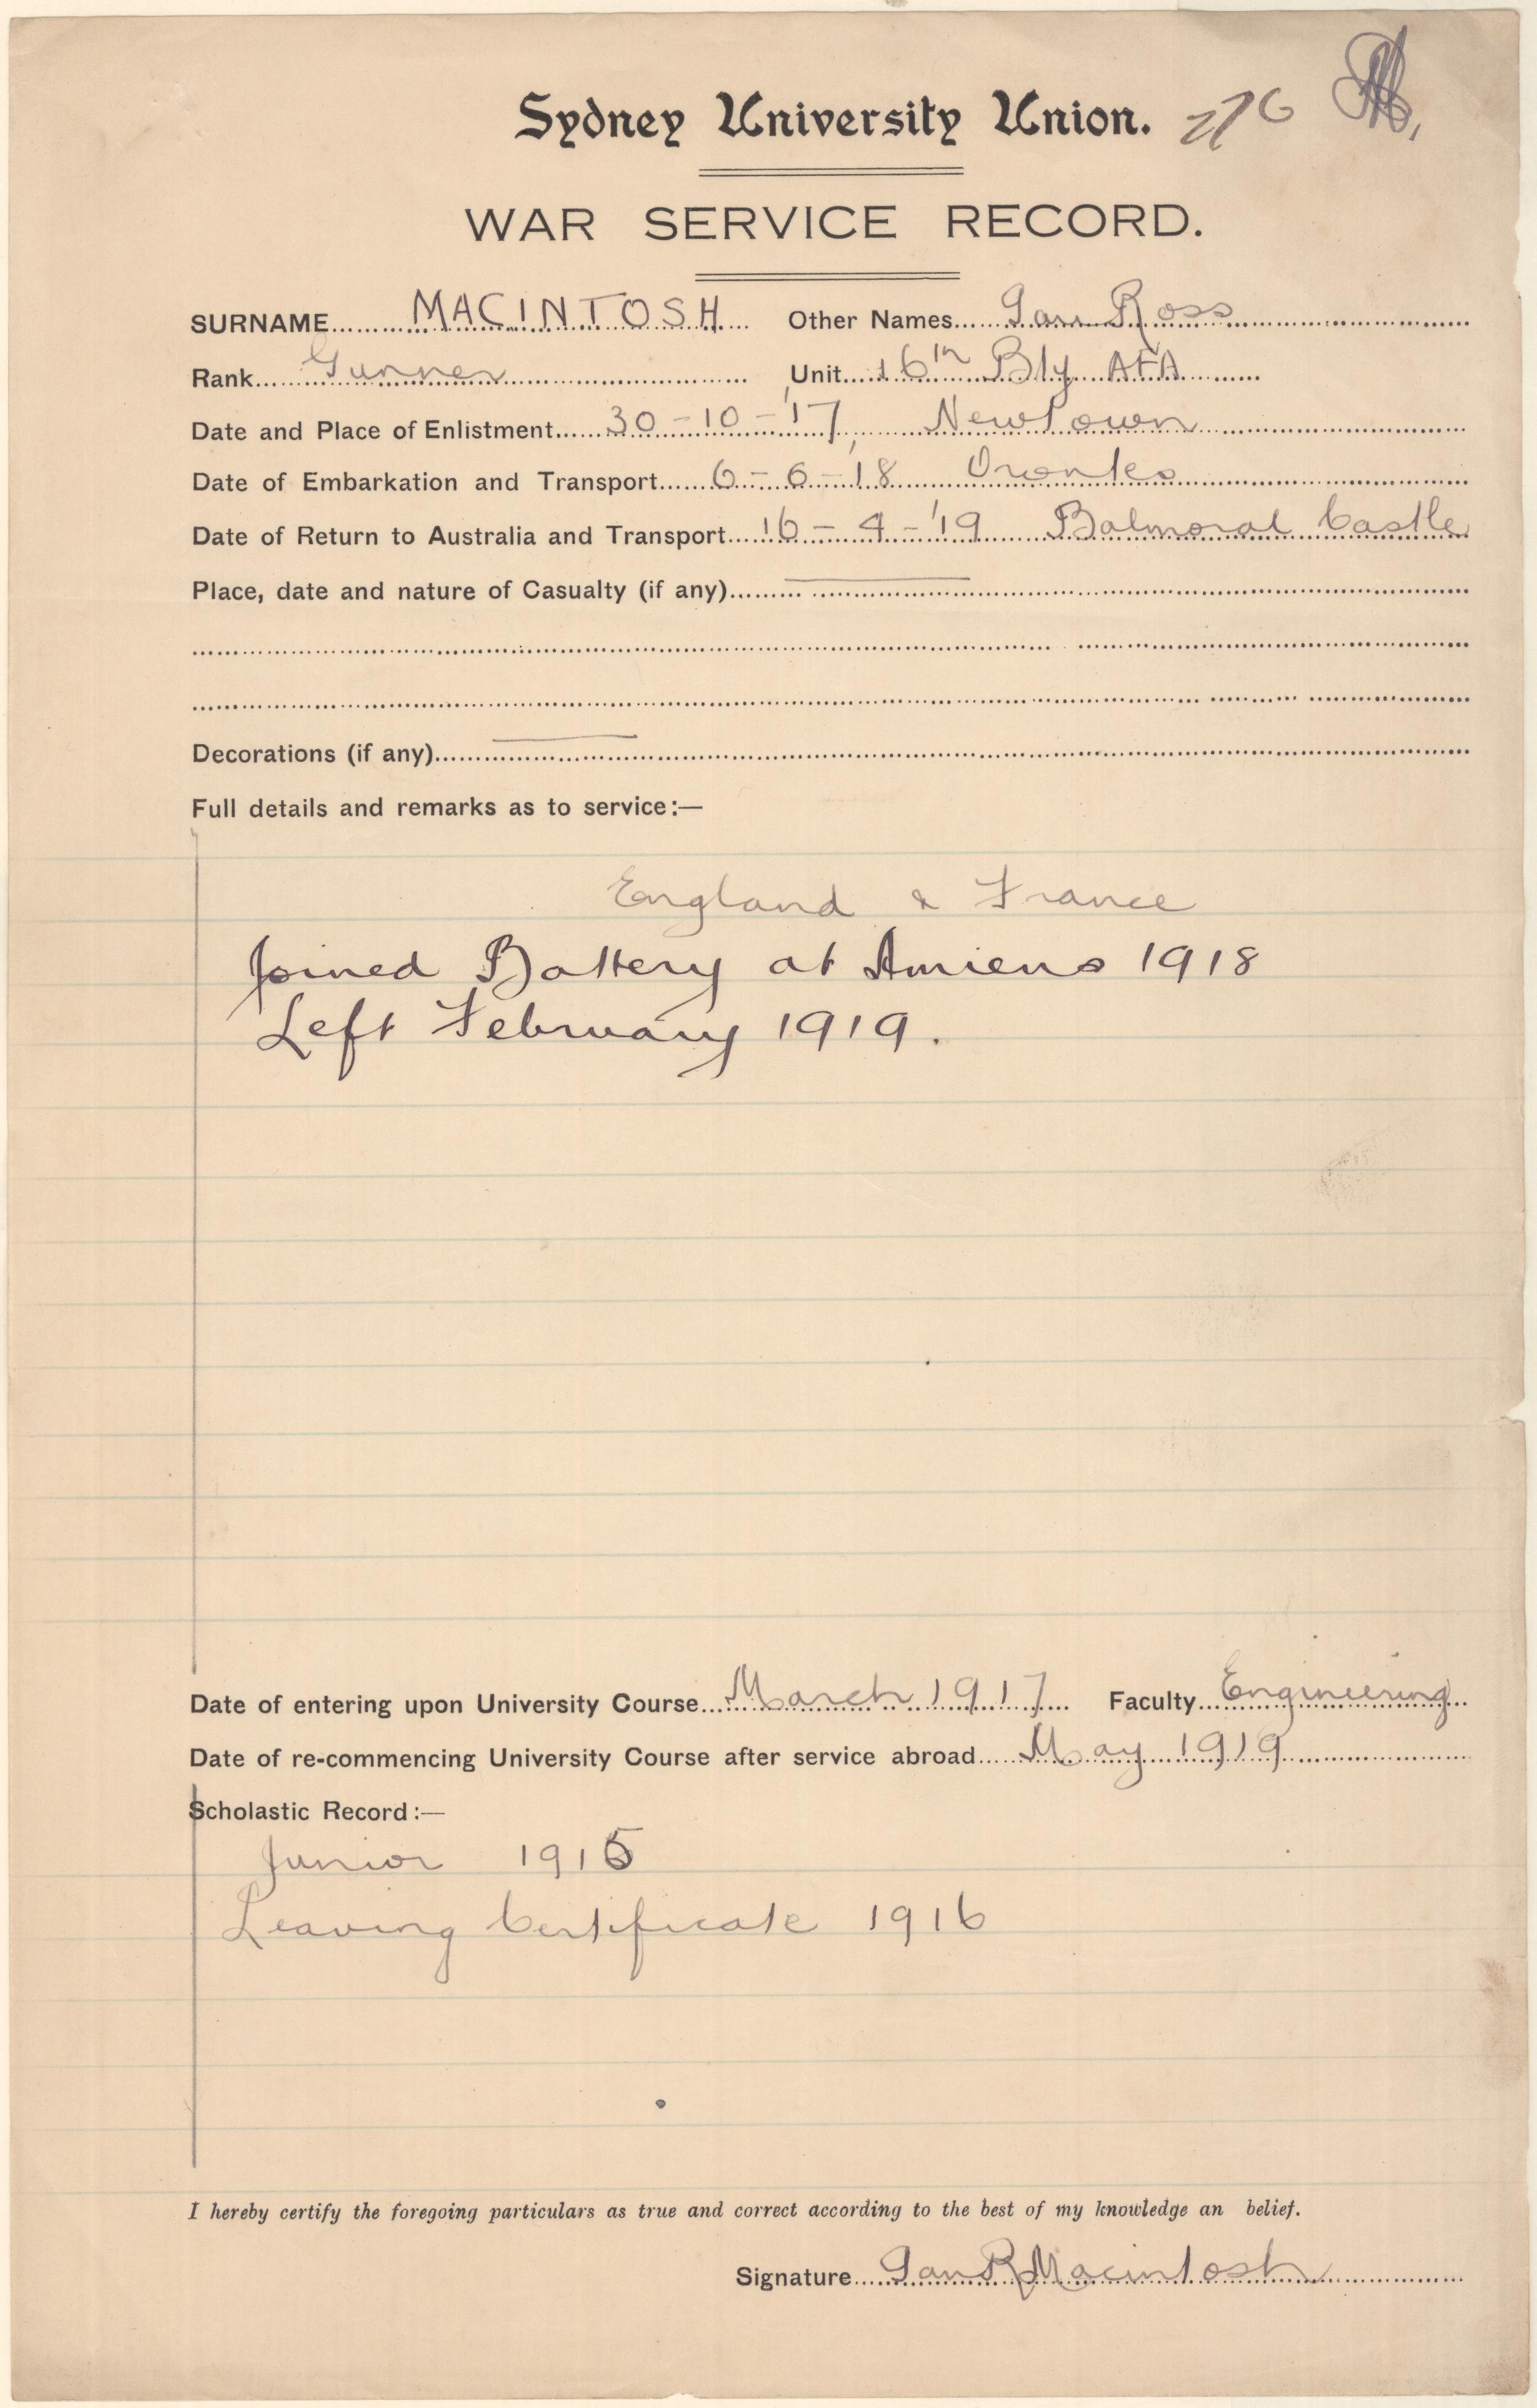 Sydney University Union. 276
WAR SERVICE RECORD.
SURNAME MACINTOSH Other Names Ian Ross
Rank Gunner Unit 16th Bty AFA
Date and Place of Enlistment 30-10-'17, Newtown
Date of Embarkation and Transport 6-6-18 Orontes
Date of Return to Australia and Transport 16-4-'19 Balmoral Castle
Place, date and nature of Casualty (if any) —
Decorations (if any) —
Full details and remarks as to service:—
England & France
Joined Battery at Amiens 1918
Left February 1919.
Date of entering upon University Course March 1917 Faculty Engineering
Date of re-commencing University Course after service abroad May 1919
Scholastic Record:—
Junior 1915
Leaving Certificate 1916
I hereby certify the foregoing particulars as true and correct according to the best of my knowledge an belief.
Signature Ian R Macintosh